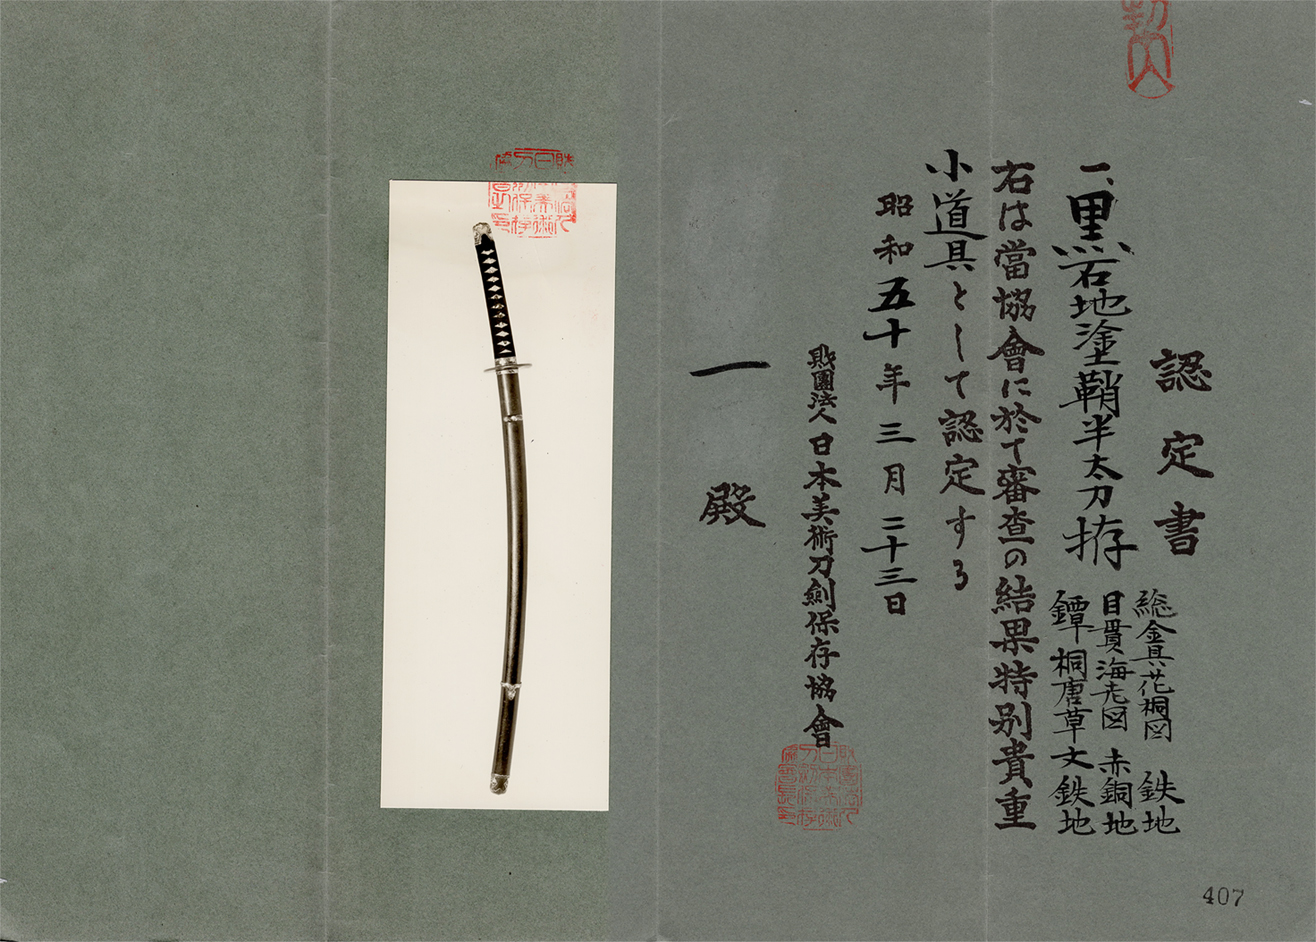 認定書
一、黒石地塗鞘半太刀拵
総金具花桐図 鉄地
目貫海老図 赤銅地
鐔桐唐草文鉄地
右は當協會に於て審査の結果特別貴重
小道具として認定する
昭和五十年三月二十三日
財團法人日本美術刀劍保存協會
一殿
407